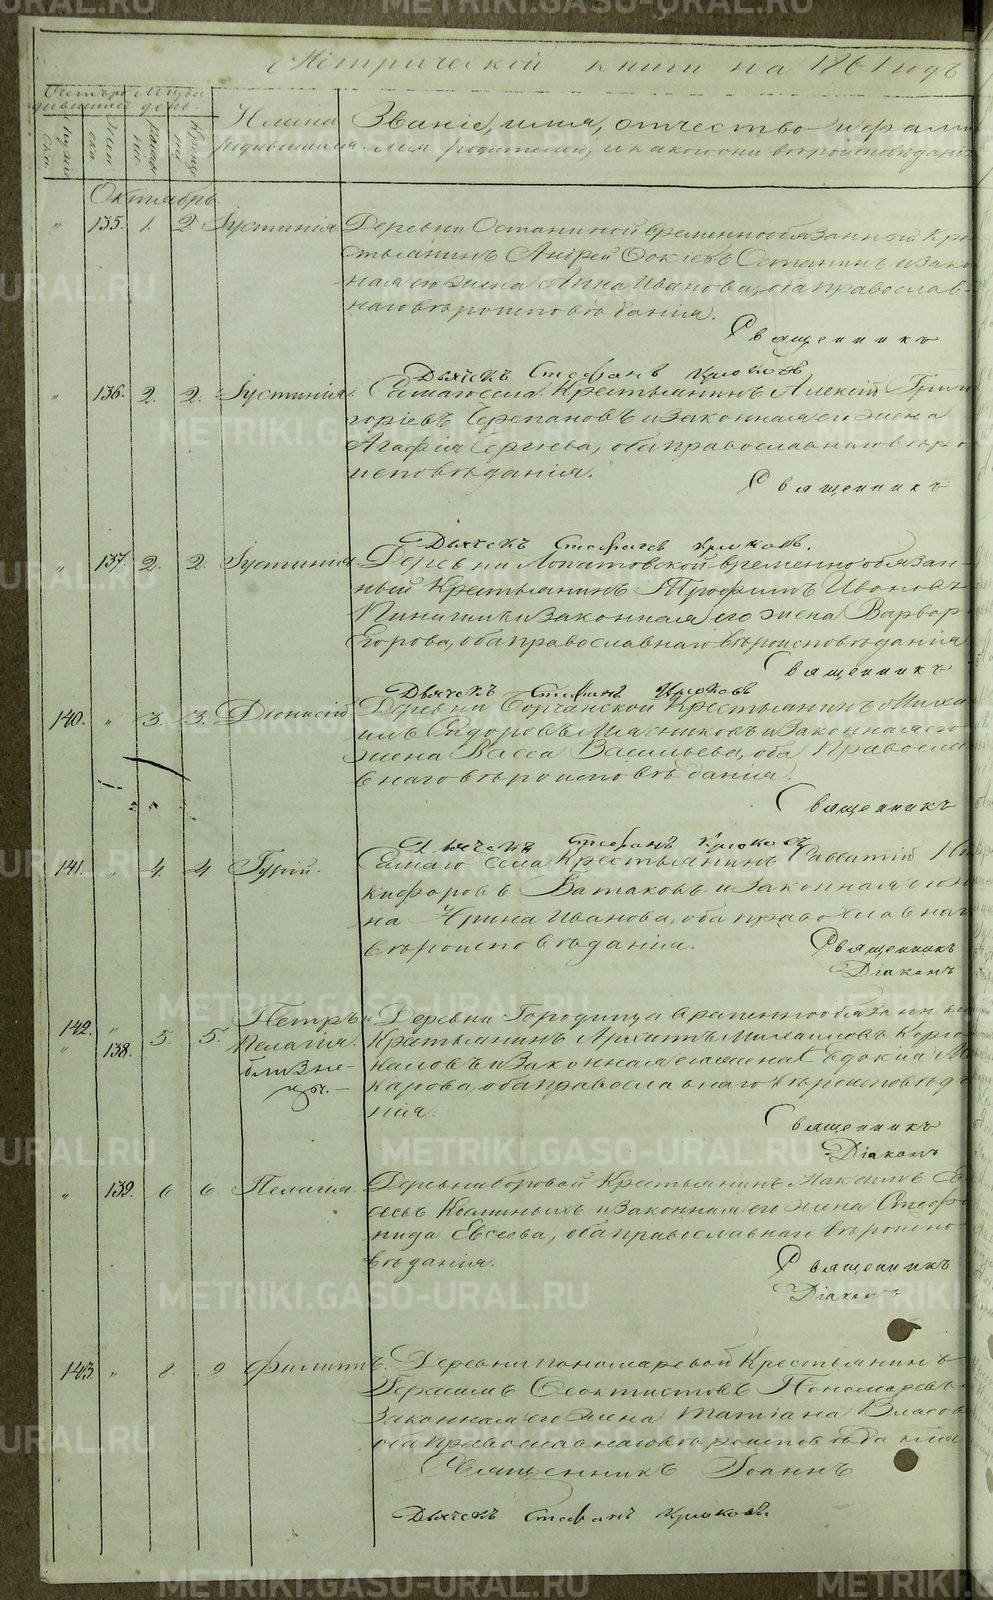 Метрической книги на 1861 годъ
Счетъ родившихся
Мѣсяцъ и день
Мужеска
Женска
Рожденія
Крещенія
Имена родившихся.
Званіе, имя, отчество и фами
лія родителей, и какого они вѣроисповѣданія
Октябрь
" 135. 1. 2 Іустинія Деревни Останиной временнообязанной Кре
стьянинъ Андрей Фокіевъ Останинъ и зако
ная его жена Анна Иванова, оба православ-
наго вѣроисповѣданія.
Священникъ
Дьячекъ Стефанъ Крюковъ
" 136. 2. 2. Іустинія. Самаго села Крестьянинъ Алексій Григ
горіевъ Черепановъ и законная его жена
Агафія Сергіева, оба православнаго вѣро
исповѣданія.
Священникъ
Дьячекъ Стефанъ Крюковъ.
" 137. 2. 2. Іустинія. Деревни Лопатовской временнообязан-
ный Крестьянинъ Трофимъ Ивановъ
и законная его жена Варвар
Егорова, оба православнаго вѣроисповѣданія
Священникъ
Дьячекъ Стефанъ Крюковъ
140. " 3. 3. Діонисій Деревни Крестьянинъ Миха
илъ Сидоровъ Мясниковъ и законная его
жена Васса Васильева, оба Правосла
внаго вѣроисповѣданія.
Священникъ
Дьячекъ Стефанъ Крюковъ
141. " 4. 4 Гурій. Самаго села Крестьянинъ Савватій Ни
кифоровъ Ватаковъ и законная его же
на Ирина Иванова, оба православнаг
вѣроисповѣданія.
Священникъ
Діаконъ
142. " 5. 5. Петръ и Деревни Городища временнообязанны
" 138. Пелагія. Крестьянинъ Архипъ Михайловъ
близне- и законная его жена Евдокія Ма
цы.- карова, оба православнаго вѣроисповѣда
нія.
Священникъ
Діаконъ
" 139. 6 6 Пелагія. Деревни Боровой Крестьянинъ Максимъ Ев
сѣевъ и законная его жена Стефа
нида Евсеева, оба православнаго вѣроиспо
вѣданія.
Священникъ
Діаконъ
143. " 8. 9 Филиппъ. Деревни Пономаревой Крестьянинъ
Герасимъ Феоктистовъ Пономаревъ
законная его жена Татіана Власов
оба православнаго вѣроисповѣданія
Священникъ Іоаннъ
Дьячекъ Стефанъ Крюковъ.
METRIKI.GASO-URAL.RU